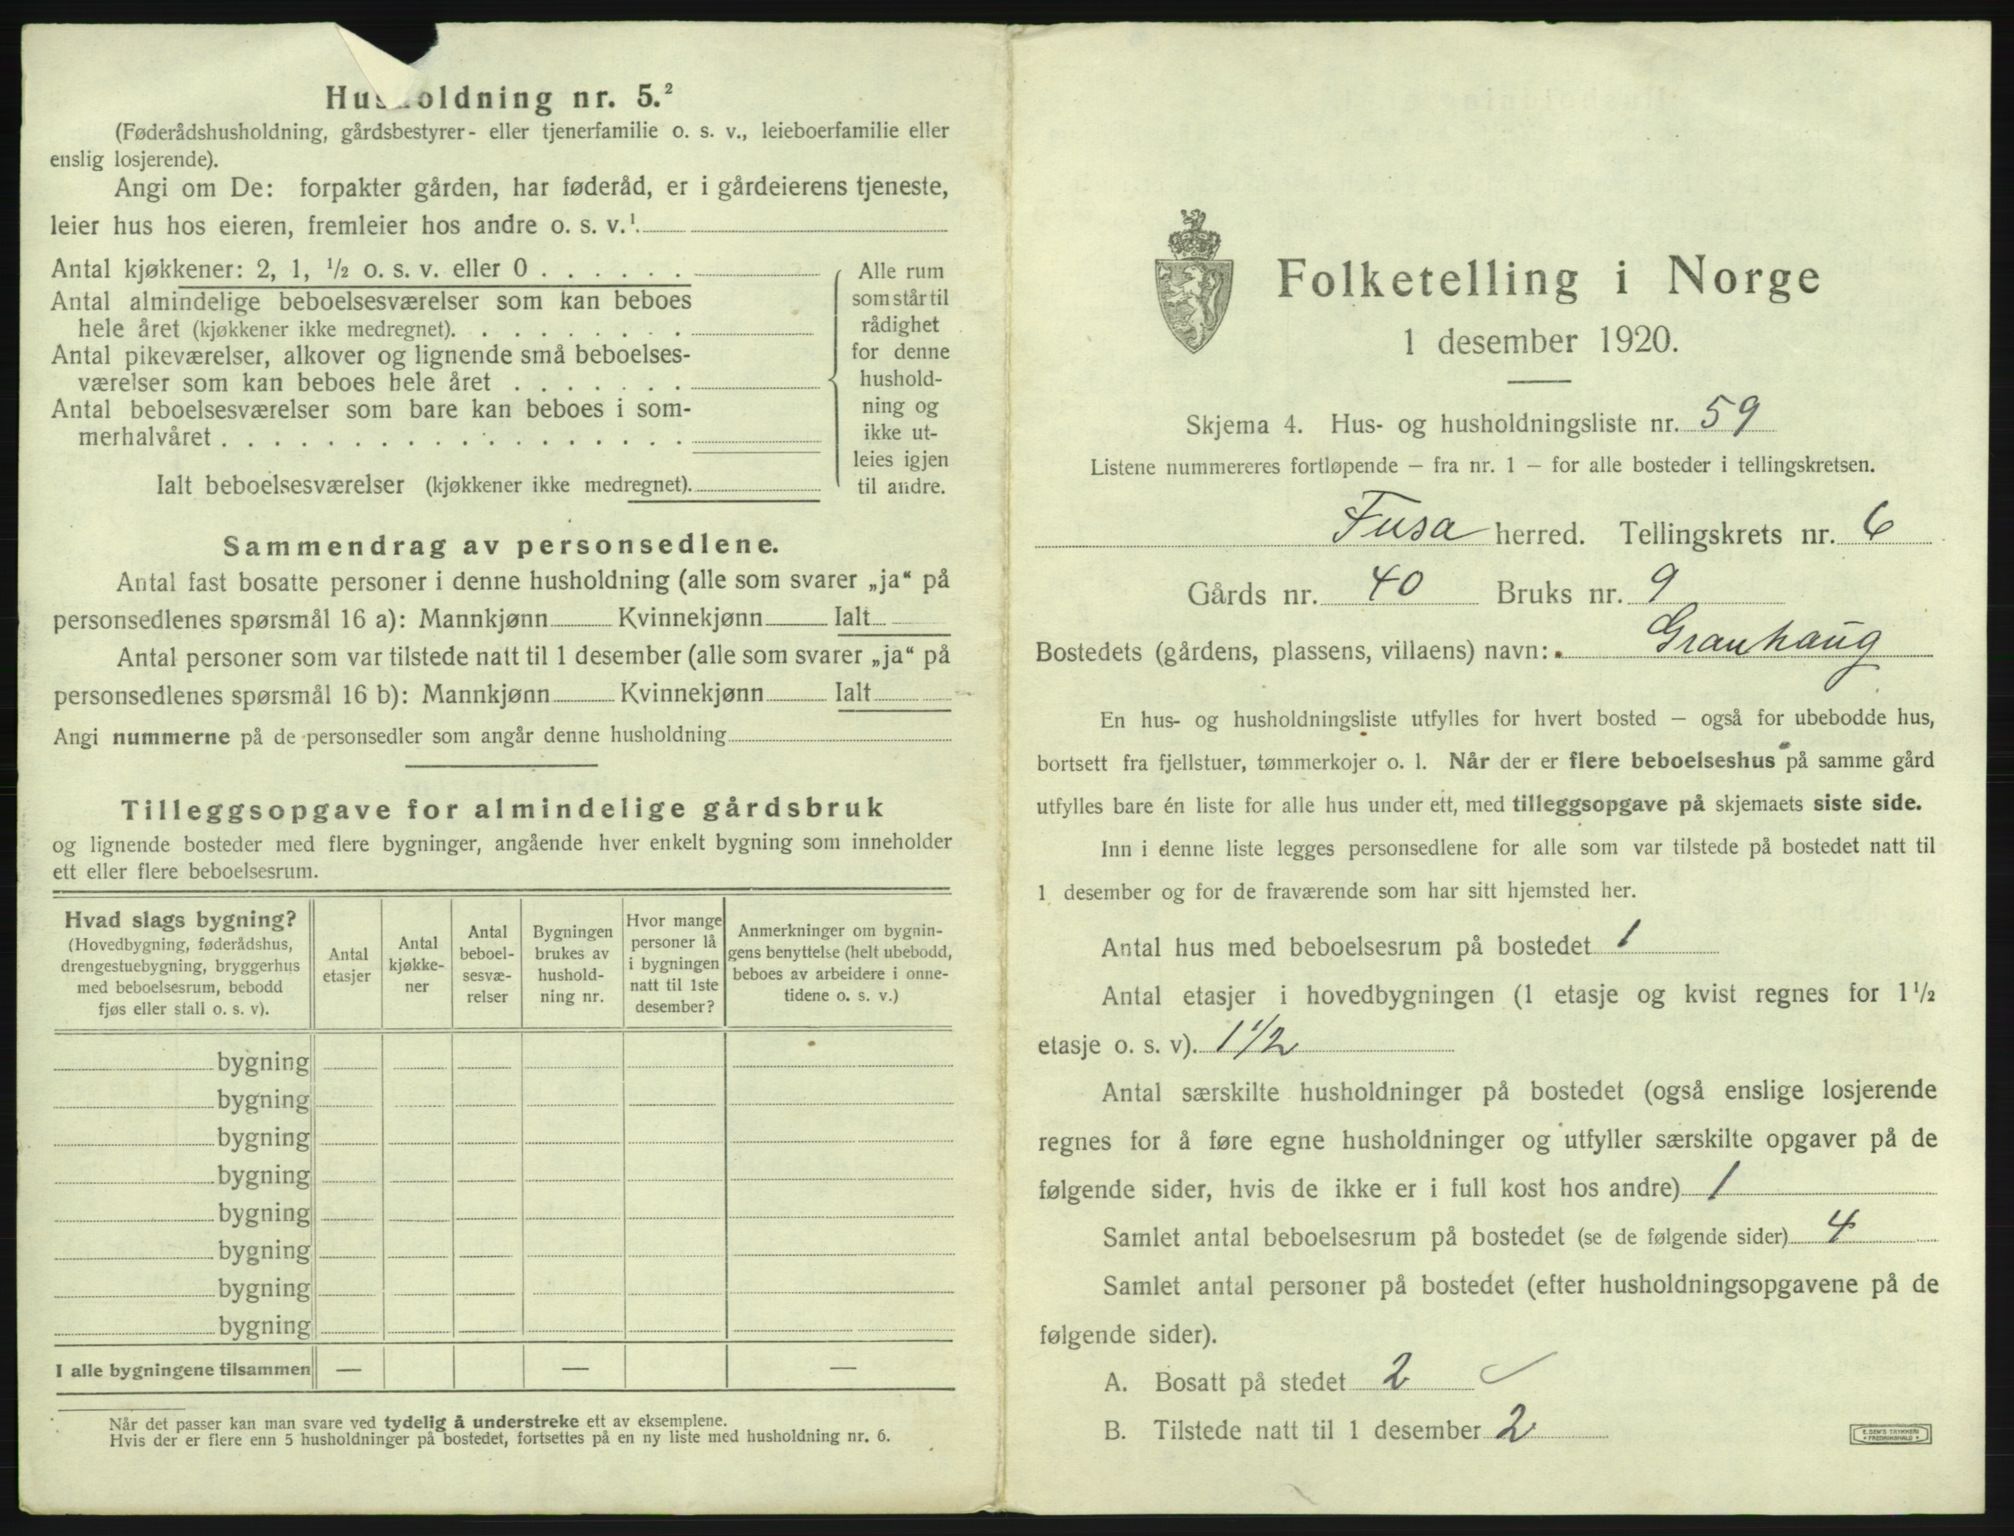 Husholdning nr. 5.²
(Føderådshusholdning, gårdsbestyrer- eller tjenerfamilie o. s. v., leieboerfamilie eller
enslig losjerende).
Angi om De: forpakter gården, har føderåd, er i gårdeierens tjeneste,
leier hus hos eieren, fremleier hos andre o. s. v.¹
Antal kjøkkener: 2, 1, ½ o. s. v. eller 0 . . . . . .
Antal almindelige beboelsesværelser som kan beboes
hele året (kjøkkener ikke medregnet). . . . . . . . .
Antal pikeværelser, alkover og lignende små beboelses-
værelser som kan beboes hele året . . . . . . .
Antal beboelsesværelser som bare kan beboes i som-
merhalvåret . . . . . . . . . . . . . . . . . .
Alle rum
som står til
rådighet
for denne
hushold-
ning og
ikke ut-
leies igjen
til andre.
Ialt beboelsesværelser (kjøkkener ikke medregnet).
Sammendrag av personsedlene.
Antal fast bosatte personer i denne husholdning (alle som svarer „ja“ på
personsedlenes spørsmål 16 a): Mannkjønn Kvinnekjønn Ialt
Antal personer som var tilstede natt til 1 desember (alle som svarer „ja“ på
personsedlenes spørsmål 16 b): Mannkjønn Kvinnekjønn Ialt
Angi nummerne på de personsedler som angår denne husholdning
Tilleggsopgave for almindelige gårdsbruk
og lignende bosteder med flere bygninger, angående hver enkelt bygning som inneholder
ett eller flere beboelsesrum.
Hvad slags bygning?
(Hovedbygning, føderådshus,
drengestuebygning, bryggerhus
med beboelsesrum, bebodd
fjøs eller stall o. s. v).
Antal
etasjer
Antal
kjøkke-
ner
Antal
beboel-
sesvæ-
relser
Bygningen
brukes av
hushold-
ning nr.
Hvor mange
personer lå
i bygningen
natt til 1ste
desember?
Anmerkninger om bygnin-
gens benyttelse (helt ubebodd,
beboes av arbeidere i onne-
tidene o. s. v.)
bygning
bygning
bygning
bygning
bygning
bygning
bygning
bygning
I alle bygningene tilsammen — — —
Når det passer kan man svare ved tydelig å understreke ett av eksemplene.
Hvis der er flere enn 5 husholdninger på bostedet, fortsettes på en ny liste med husholdning nr. 6.
Folketelling i Norge
1 desember 1920.
Skjema 4. Hus- og husholdningsliste nr. 59
Listene nummereres fortløpende – fra nr. 1 – for alle bosteder i tellingskretsen.
Fusa herred. Tellingskrets nr. 6
Gårds nr. 40 Bruks nr. 9
Bostedets (gårdens, plassens, villaens) navn: Granhaug
En hus- og husholdningsliste utfylles for hvert bosted – også for ubebodde hus,
bortsett fra fjellstuer, tømmerkojer o. l. Når der er flere beboelseshus på samme gård
utfylles bare én liste for alle hus under ett, med tilleggsopgave på skjemaets siste side.
Inn i denne liste legges personsedlene for alle som var tilstede på bostedet natt til
1 desember og for de fraværende som har sitt hjemsted her.
Antal hus med beboelsesrum på bostedet 1
Antal etasjer i hovedbygningen (1 etasje og kvist regnes for 1½
etasje o. s. v). 1 1/2
Antal særskilte husholdninger på bostedet (også enslige losjerende
regnes for å føre egne husholdninger og utfyller særskilte opgaver på de
følgende sider, hvis de ikke er i full kost hos andre) 1
Samlet antal beboelsesrum på bostedet (se de følgende sider) 4
Samlet antal personer på bostedet (efter husholdningsopgavene på de
følgende sider).
A. Bosatt på stedet 2
B. Tilstede natt til 1 desember 2
E. SEM'S TRYKKERI
FREDRIKSHALD